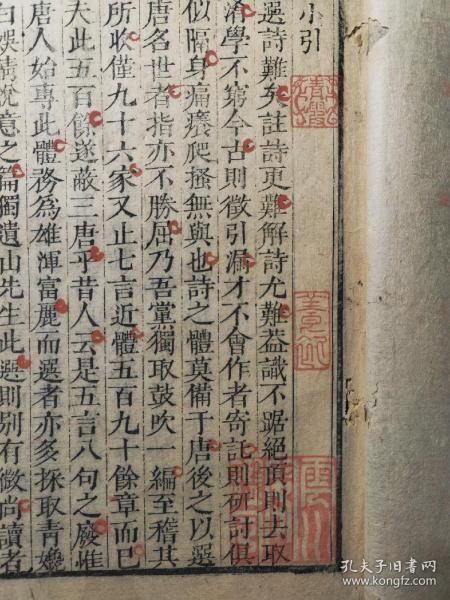 小引
選詩難矣註詩更難解詩尤難蓋識不踞絕頂則去取
淆學不窮今古則徵引漏才不會作者寄託則研討俱
似隔身痛癢爬搔無與也詩之體莫備于唐後之以選
唐名世者指亦不勝屈乃吾黨獨取鼓吹一編至稽其
所收僅九十六家又止七言近體五百九十餘章而已
夫此五百餘遂蔽三唐乎昔人云是五言八句之廢惟
唐人始專此體務為雄渾富麗而選者亦多採取青孃
自娛情悅意之篇獨遺山先生此選則別有微尚讀者
孔夫子旧书网
www.kongfz.com